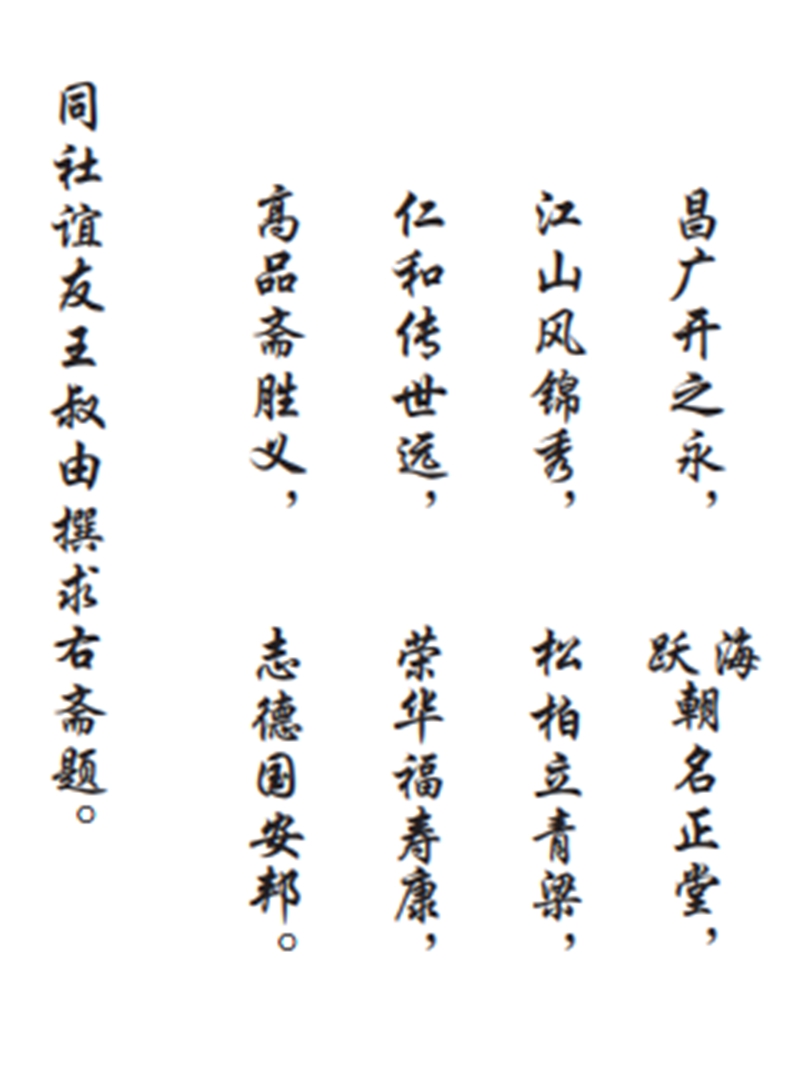 昌广开之永，
海跃朝名正堂，
江山风锦秀，
松柏立青梁，
仁和传世远，
荣华福寿康，
高品斋胜义，
志德国安邦。
同社谊友王叔由撰求右斋题。